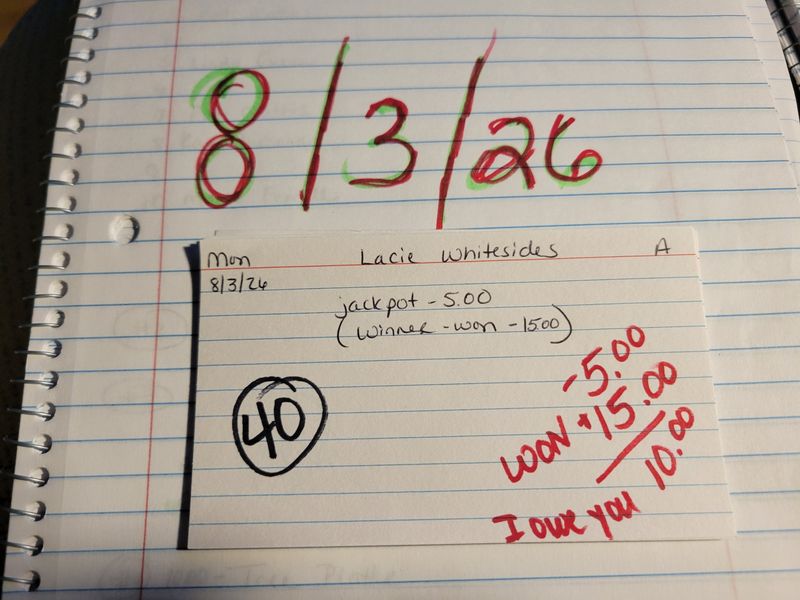 8/3/26
Mon Lacie Whitesides A
8/3/26
jackpot - 5.00
(winner - won - 15.00)
40
- 5.00
WON + 15.00
10.00
I owe you